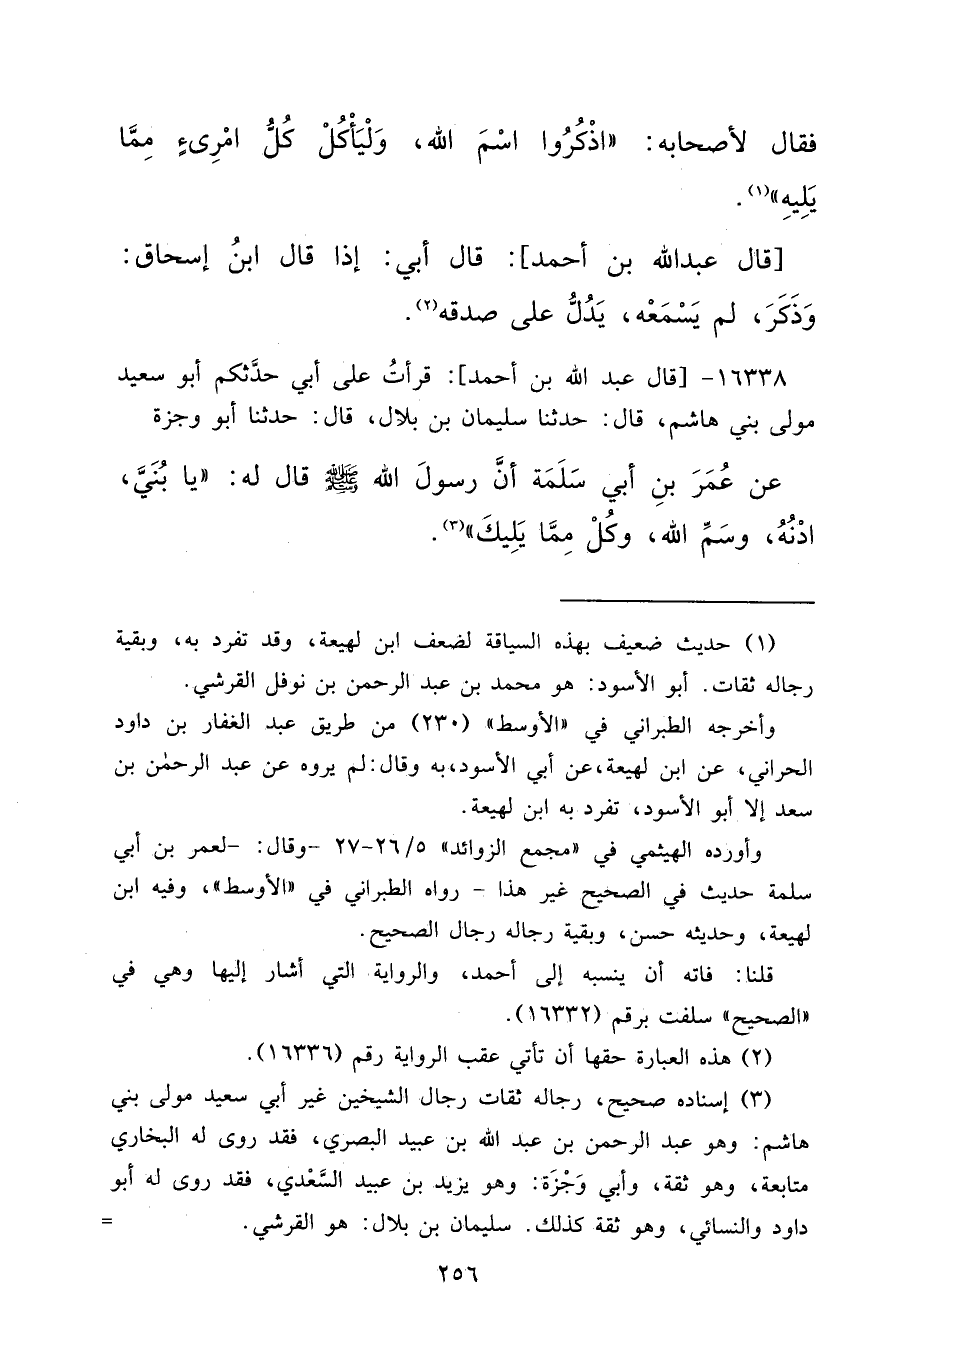 فقال لأصحابه: «اذْكُرُوا اسْمَ الله، وَلْيَأْكُلْ كُلُّ امْرِىءٍ مِمَّا
يَلِيهِ»(١).
[قال عبدالله بن أحمد]: قال أبي: إذا قال ابنُ إسحاق:
وَذَكَرَ، لم يَسْمَعْه، يَدُلُّ على صدقه(٢).
١٦٣٣٨- [قال عبد الله بن أحمد]: قرأتُ على أبي حدَّثكم أبو سعيد
مولى بني هاشم، قال: حدثنا سليمان بن بلال، قال: حدثنا أبو وجزة
عن عُمَرَ بنِ أبي سَلَمَة أنَّ رسولَ الله ﷺ قال له: «يا بُنَيَّ،
ادْنُهُ، وسَمِّ الله، وكُلْ مِمَّا يَلِيكَ»(٣).
(١) حديث ضعيف بهذه السياقة لضعف ابن لهيعة، وقد تفرد به، وبقية
رجاله ثقات. أبو الأسود: هو محمد بن عبد الرحمن بن نوفل القرشي.
وأخرجه الطبراني في «الأوسط» (٢٣٠) من طريق عبد الغفار بن داود
الحراني، عن ابن لهيعة،عن أبي الأسود،به وقال:لم يروه عن عبد الرحمٰن بن
سعد إلا أبو الأسود، تفرد به ابن لهيعة.
وأورده الهيثمي في «مجمع الزوائد» ٢٦/٥-٢٧ -وقال: -لعمر بن أبي
سلمة حديث في الصحيح غير هذا - رواه الطبراني في «الأوسط»، وفيه ابن
لهيعة، وحديثه حسن، وبقية رجاله رجال الصحيح.
قلنا: فاته أن ينسبه إلى أحمد، والرواية التي أشار إليها وهي في
«الصحيح» سلفت برقم (١٦٣٣٢).
(٢) هذه العبارة حقها أن تأتي عقب الرواية رقم (١٦٣٣٦).
(٣) إسناده صحيح، رجاله ثقات رجال الشيخين غير أبي سعيد مولى بني
هاشم: وهو عبد الرحمن بن عبد الله بن عبيد البصري، فقد روى له البخاري
متابعة، وهو ثقة، وأبي وَجْزَة: وهو يزيد بن عبيد السَّعْدي، فقد روى له أبو
داود والنسائي، وهو ثقة كذلك. سليمان بن بلال: هو القرشي. =
٢٥٦